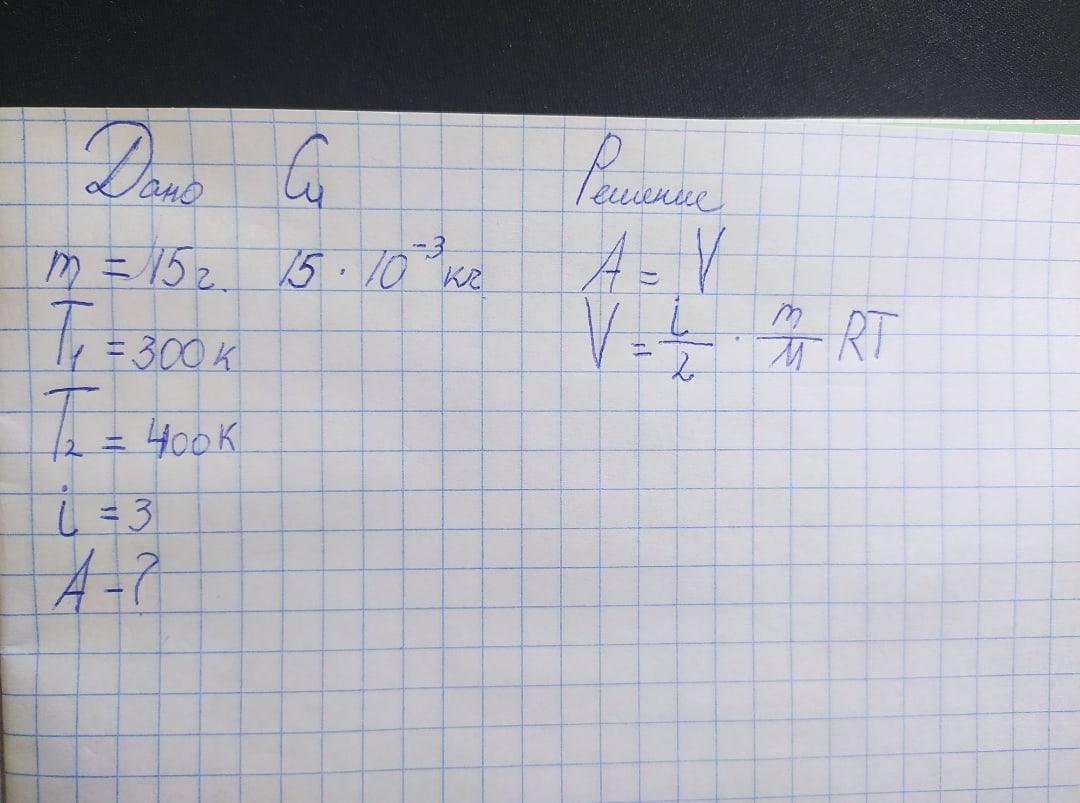 Дано Си Решение
m = 15г. 15 · 10⁻³ кг A = V
T₁ = 300 к V = i/2 · m/M RT
T₂ = 400 К
i = 3
A - ?